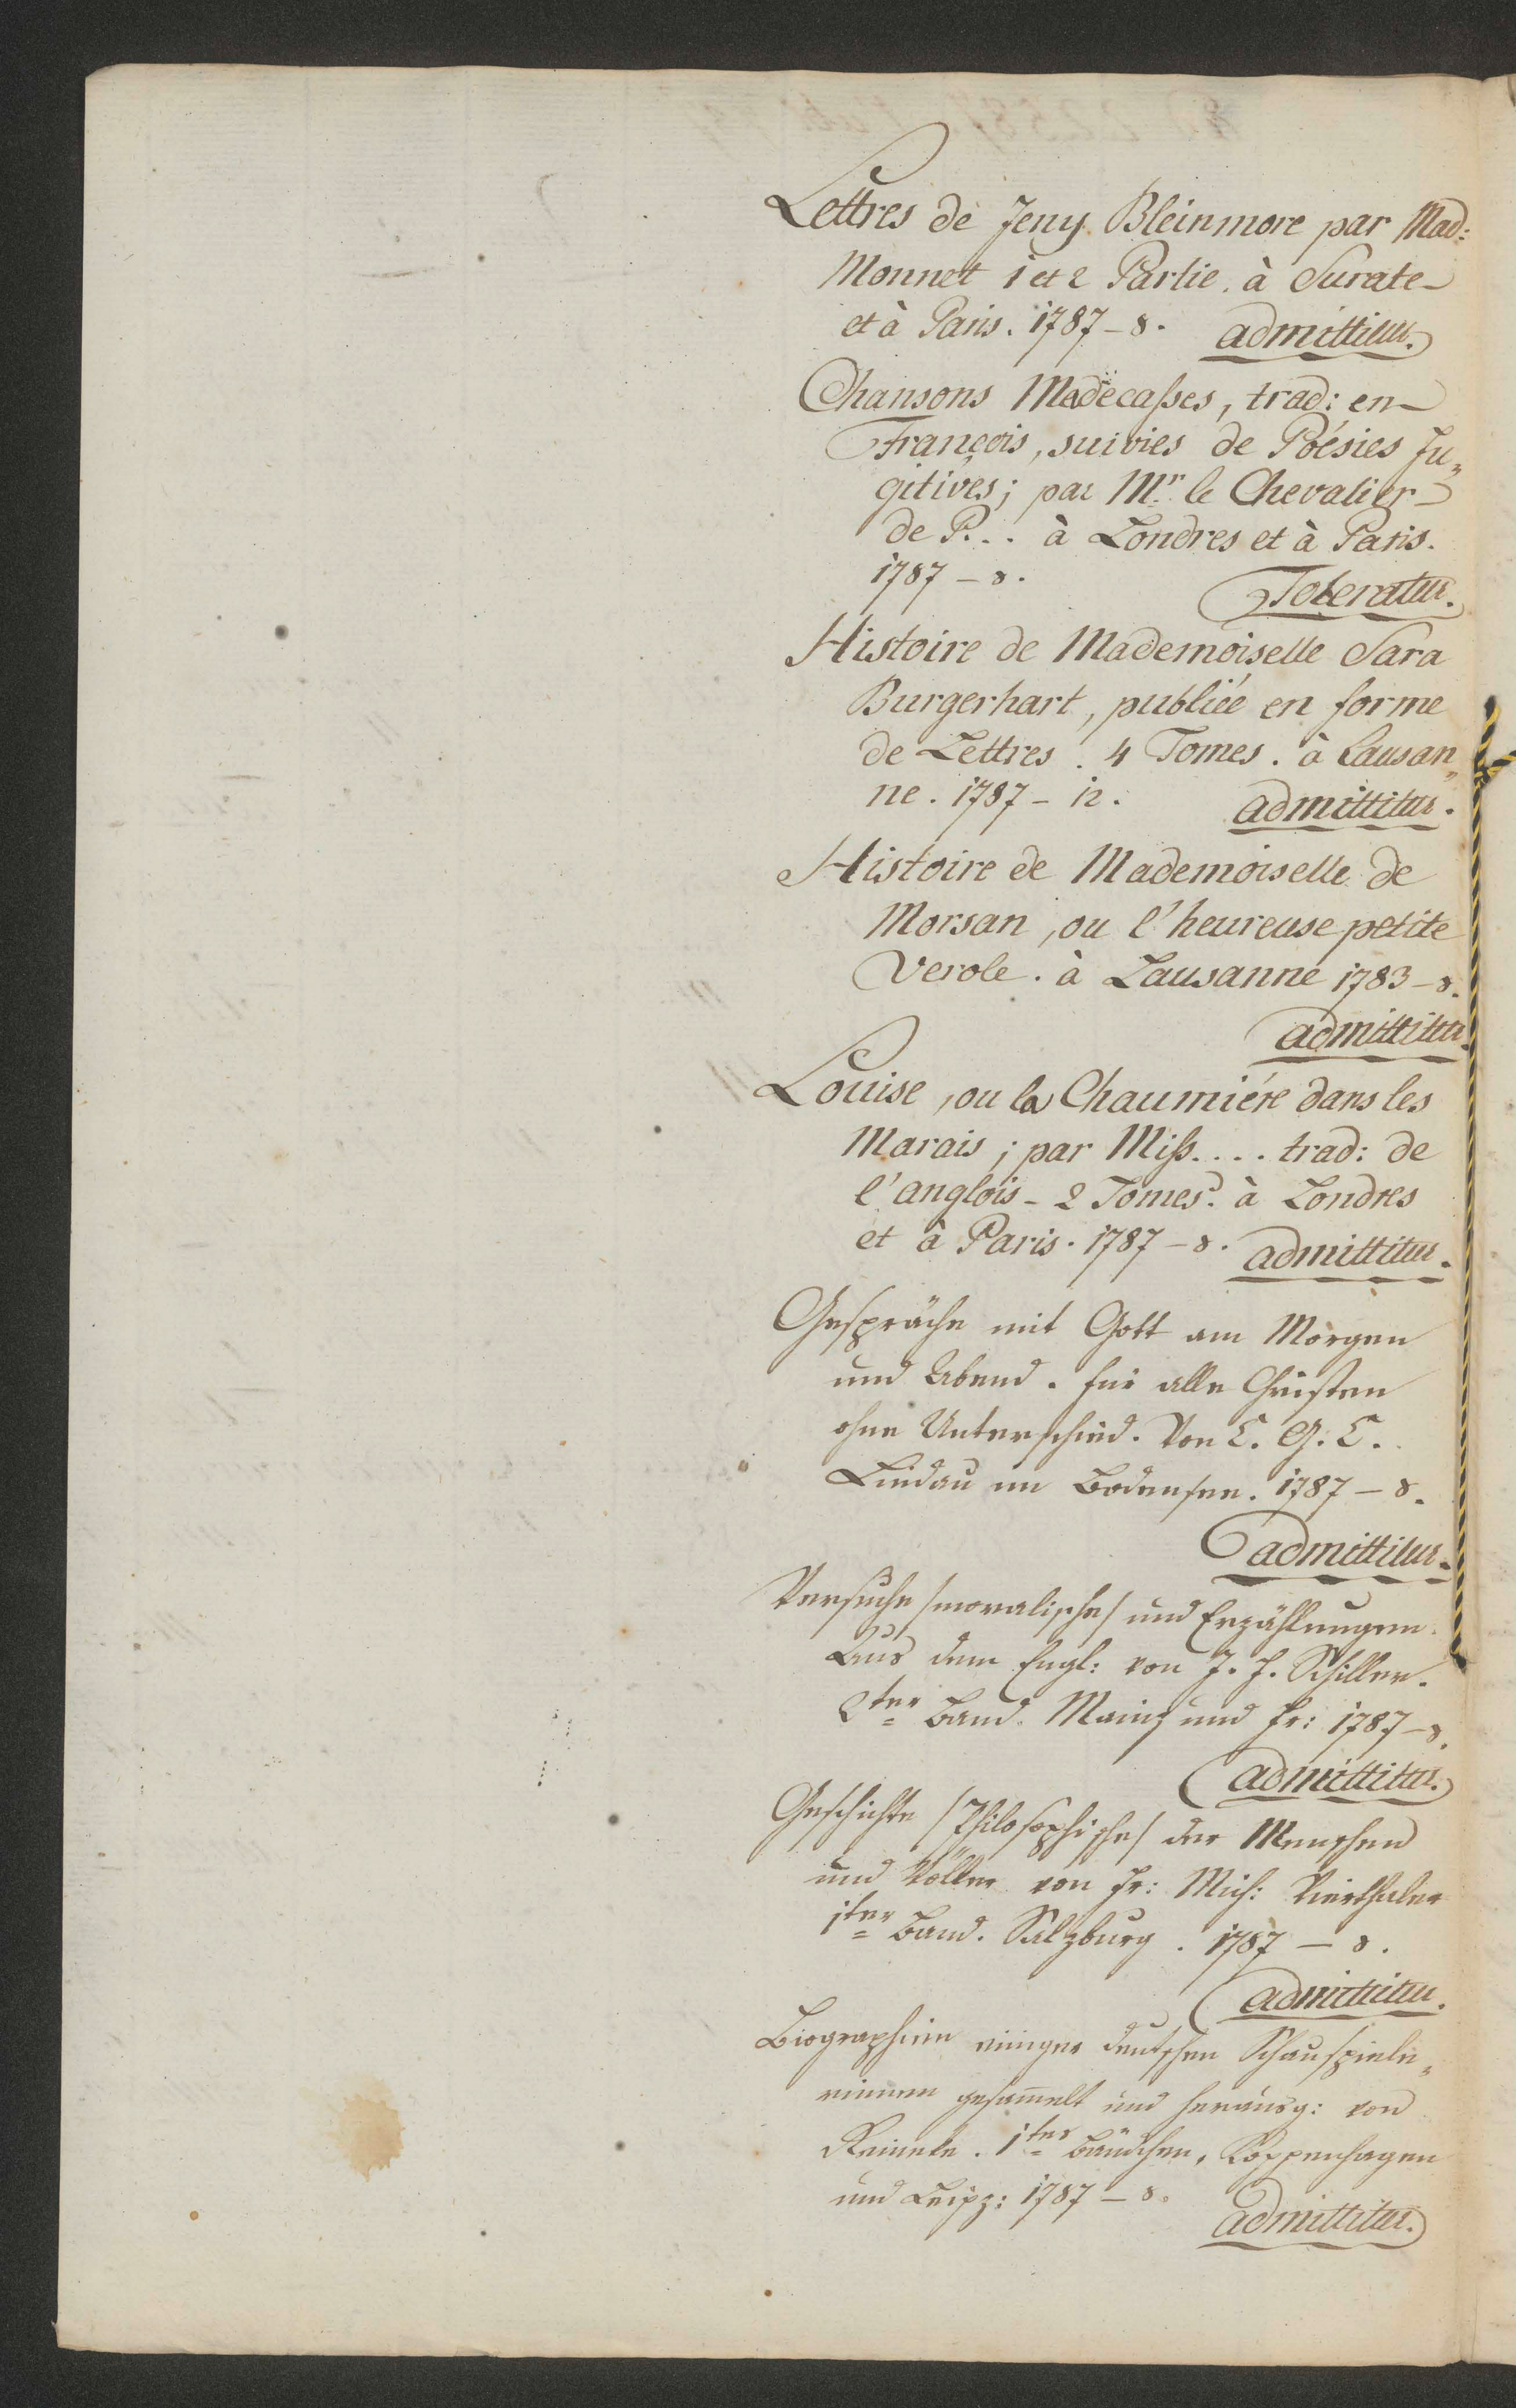 Lettres de Jeny Bleinmore par Mad:
Monnet 1 et 2 Partie. à Surate
et à Paris. 1787 - 8. admittitur.
Chansons Madecaßes, trad: en
François, suivies de Poésies Fu„
gitives; par Mr. le Chevalier
de P... à Londres et à Paris.
1787 - 8. Toleratur.
Histoire de Mademoiselle Sara
Burgerhart, publiée en forme
de Lettres. 4 Tomes. à Lausan„
ne. 1787 - 12. admittitur.
Histoire de Mademoiselle de
Morsan, ou l'heureuse petite
Verole. à Lausanne 1783 - 8.
admittitur.
Louise, ou la Chaumiére dans les
Marais; par Miß.... trad: de
l'anglois - 2 Tomes. à Londres
et à Paris. 1787 - 8. admittitur.
Gespräche mit Gott am Morgen
und Abend. für alle Christen
ohne Unterschied. Von C. G. C.
Lindau im Bodensee. 1787 - 8.
admittitur.
Versuche /moralische/ und Erzählungen.
Aus dem Engl: von J. F. Schiller.
2ter Band. Mainz und Fr: 1787 - 8.
admittitur.
Geschichte /Philosophische/ der Menschen
und Völker von Fr: Mich: Vierthaler
1ter Band. Salzburg. 1787 - 8.
admittitur.
Biographien einiger deutschen Schauspiele„
rinnen gesammelt und herausg: von
Reinele. 1tes Bändchen. Koppenhagen
und Leipz: 1787 - 8.
admittitur.